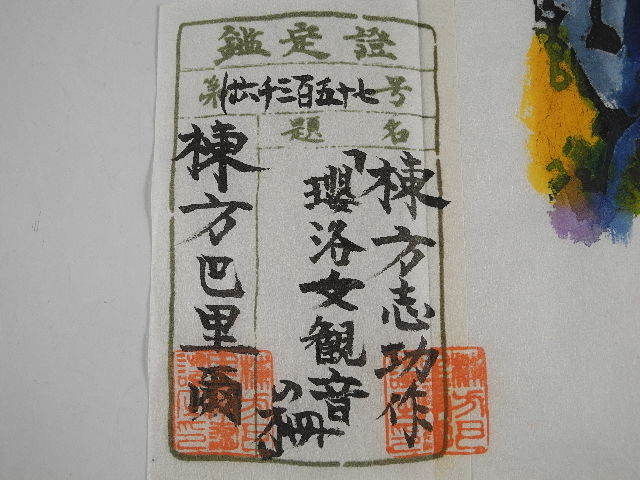 鑑定證
第 六千三百五十七号
題名
棟方志功作
「瓔洛女観音
の柵」
棟方巴里爾